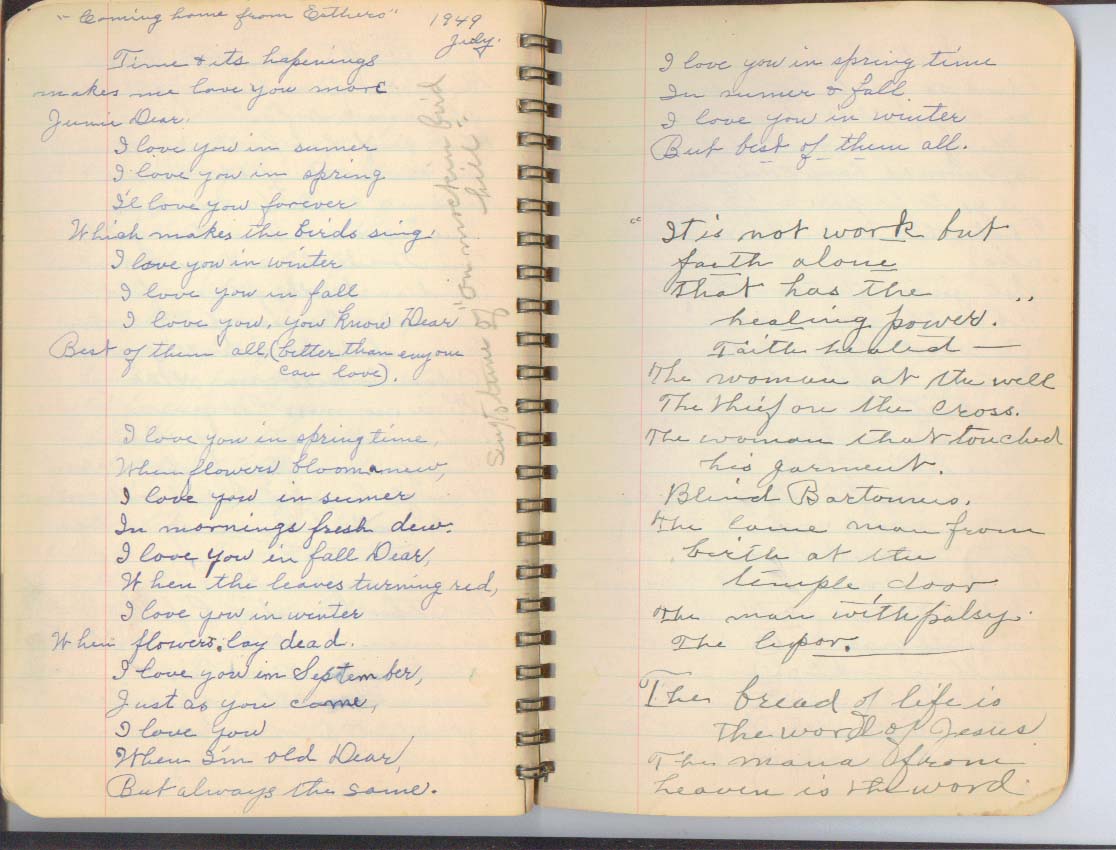 "Coming home from Esthers" 1949
July.
Time & its hapenings
makes me love you more
Junie Dear.
I love you in sumer
I love you in spring
I'l love you forever
Which makes the birds sing.
I love you in winter
I love you in fall
I love you, you know Dear
Best of them all, (better than enyone
can love).
I love you in spring time,
When flowers bloom anew,
I love you in sumer
In mornings fresh dew.
I love you in fall Dear,
When the leaves turning red,
I love you in winter
When flowers. lay dead.
I love you in September,
Just as you came,
I love you
When I'm old Dear,
But always the same.
Sing to tune of "On mockin bird
hill".
I love you in spring time
In sumer & fall
I love you in winter
But best of them all.
"It is not work but
faith alone
that has the
healing power."
Faith healed —
The woman at the well
The thief on the cross.
The woman that touched
his garment.
Blind Bartounus.
The lame man from
birth at the
temple door
The man with palsy.
The lepor.
The bread of life is
the word of Jesus
The mana from
heaven is the word